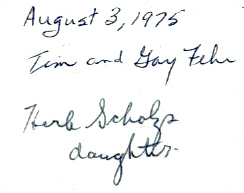 August 3, 1975
Tim and Gay Fehr
Herb Scholzs
daughter.